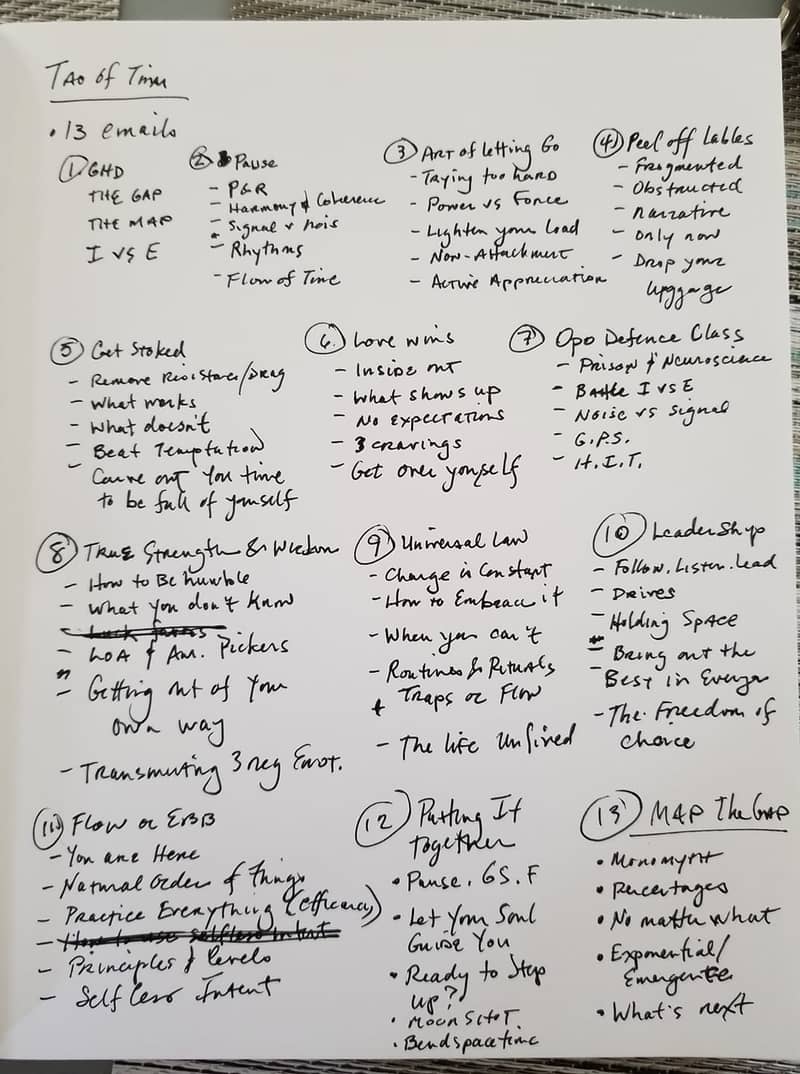 TAO of Time
• 13 emails
① GHD
THE GAP
THE MAP
I vs E
② Pause
- P&R
- Harmony & Coherence
- Signal v Nois
- Rhythms
- Flow of Time
③ ART of Letting Go
- Trying too hard
- Power vs Force
- Lighten your Load
- Non-Attachment
- Active Appreciation
④ Peel off Lables
- Fragmented
- Obstructed
- Narrative
- Only now
- Drop your
luggage
⑤ Get Stoked
- Remove Resistance/Drag
- What works
- What doesn't
- Beat Temptation
- Carve out You time
to be full of yourself
⑥ Love wins
- Inside out
- What shows up
- No Expectations
- 3 cravings
- Get over yourself
⑦ Opo Defence Class
- Prison & Neuroscience
- Battle I vs E
- Noise vs Signal
- G.P.S.
- H.I.T.
⑧ True Strength & Wisdom
- How to Be humble
- What you don't know
- LOA & Am. Pickers
- Getting out of Your
own way
- Transmuting 3 neg Emot.
⑨ Universal Law
- Change is Constant
- How to Embrace it
- When you can't
- Routines & Rituals
+ Traps or Flow
- The life Unlived
⑩ Leadership
- Follow. Listen. Lead
- Drives
- Holding Space
- Bring out the
Best in Everyone
- The Freedom of
choice
⑪ Flow or EBB
- You are Here
- Natural Order of things
- Practice Everything (efficiency)
- How to use selfless intent
- Principles & levels
- Selfless Intent
⑫ Putting It
together
• Pause. GS.F
• Let Your Soul
Guide You
• Ready to Step
up?
• Moon SHOT.
• Bendspacetime
⑬ MAP The GAP
• Monomyth
• Percentages
• No matter what
• Exponential/
Emergence
• What's next